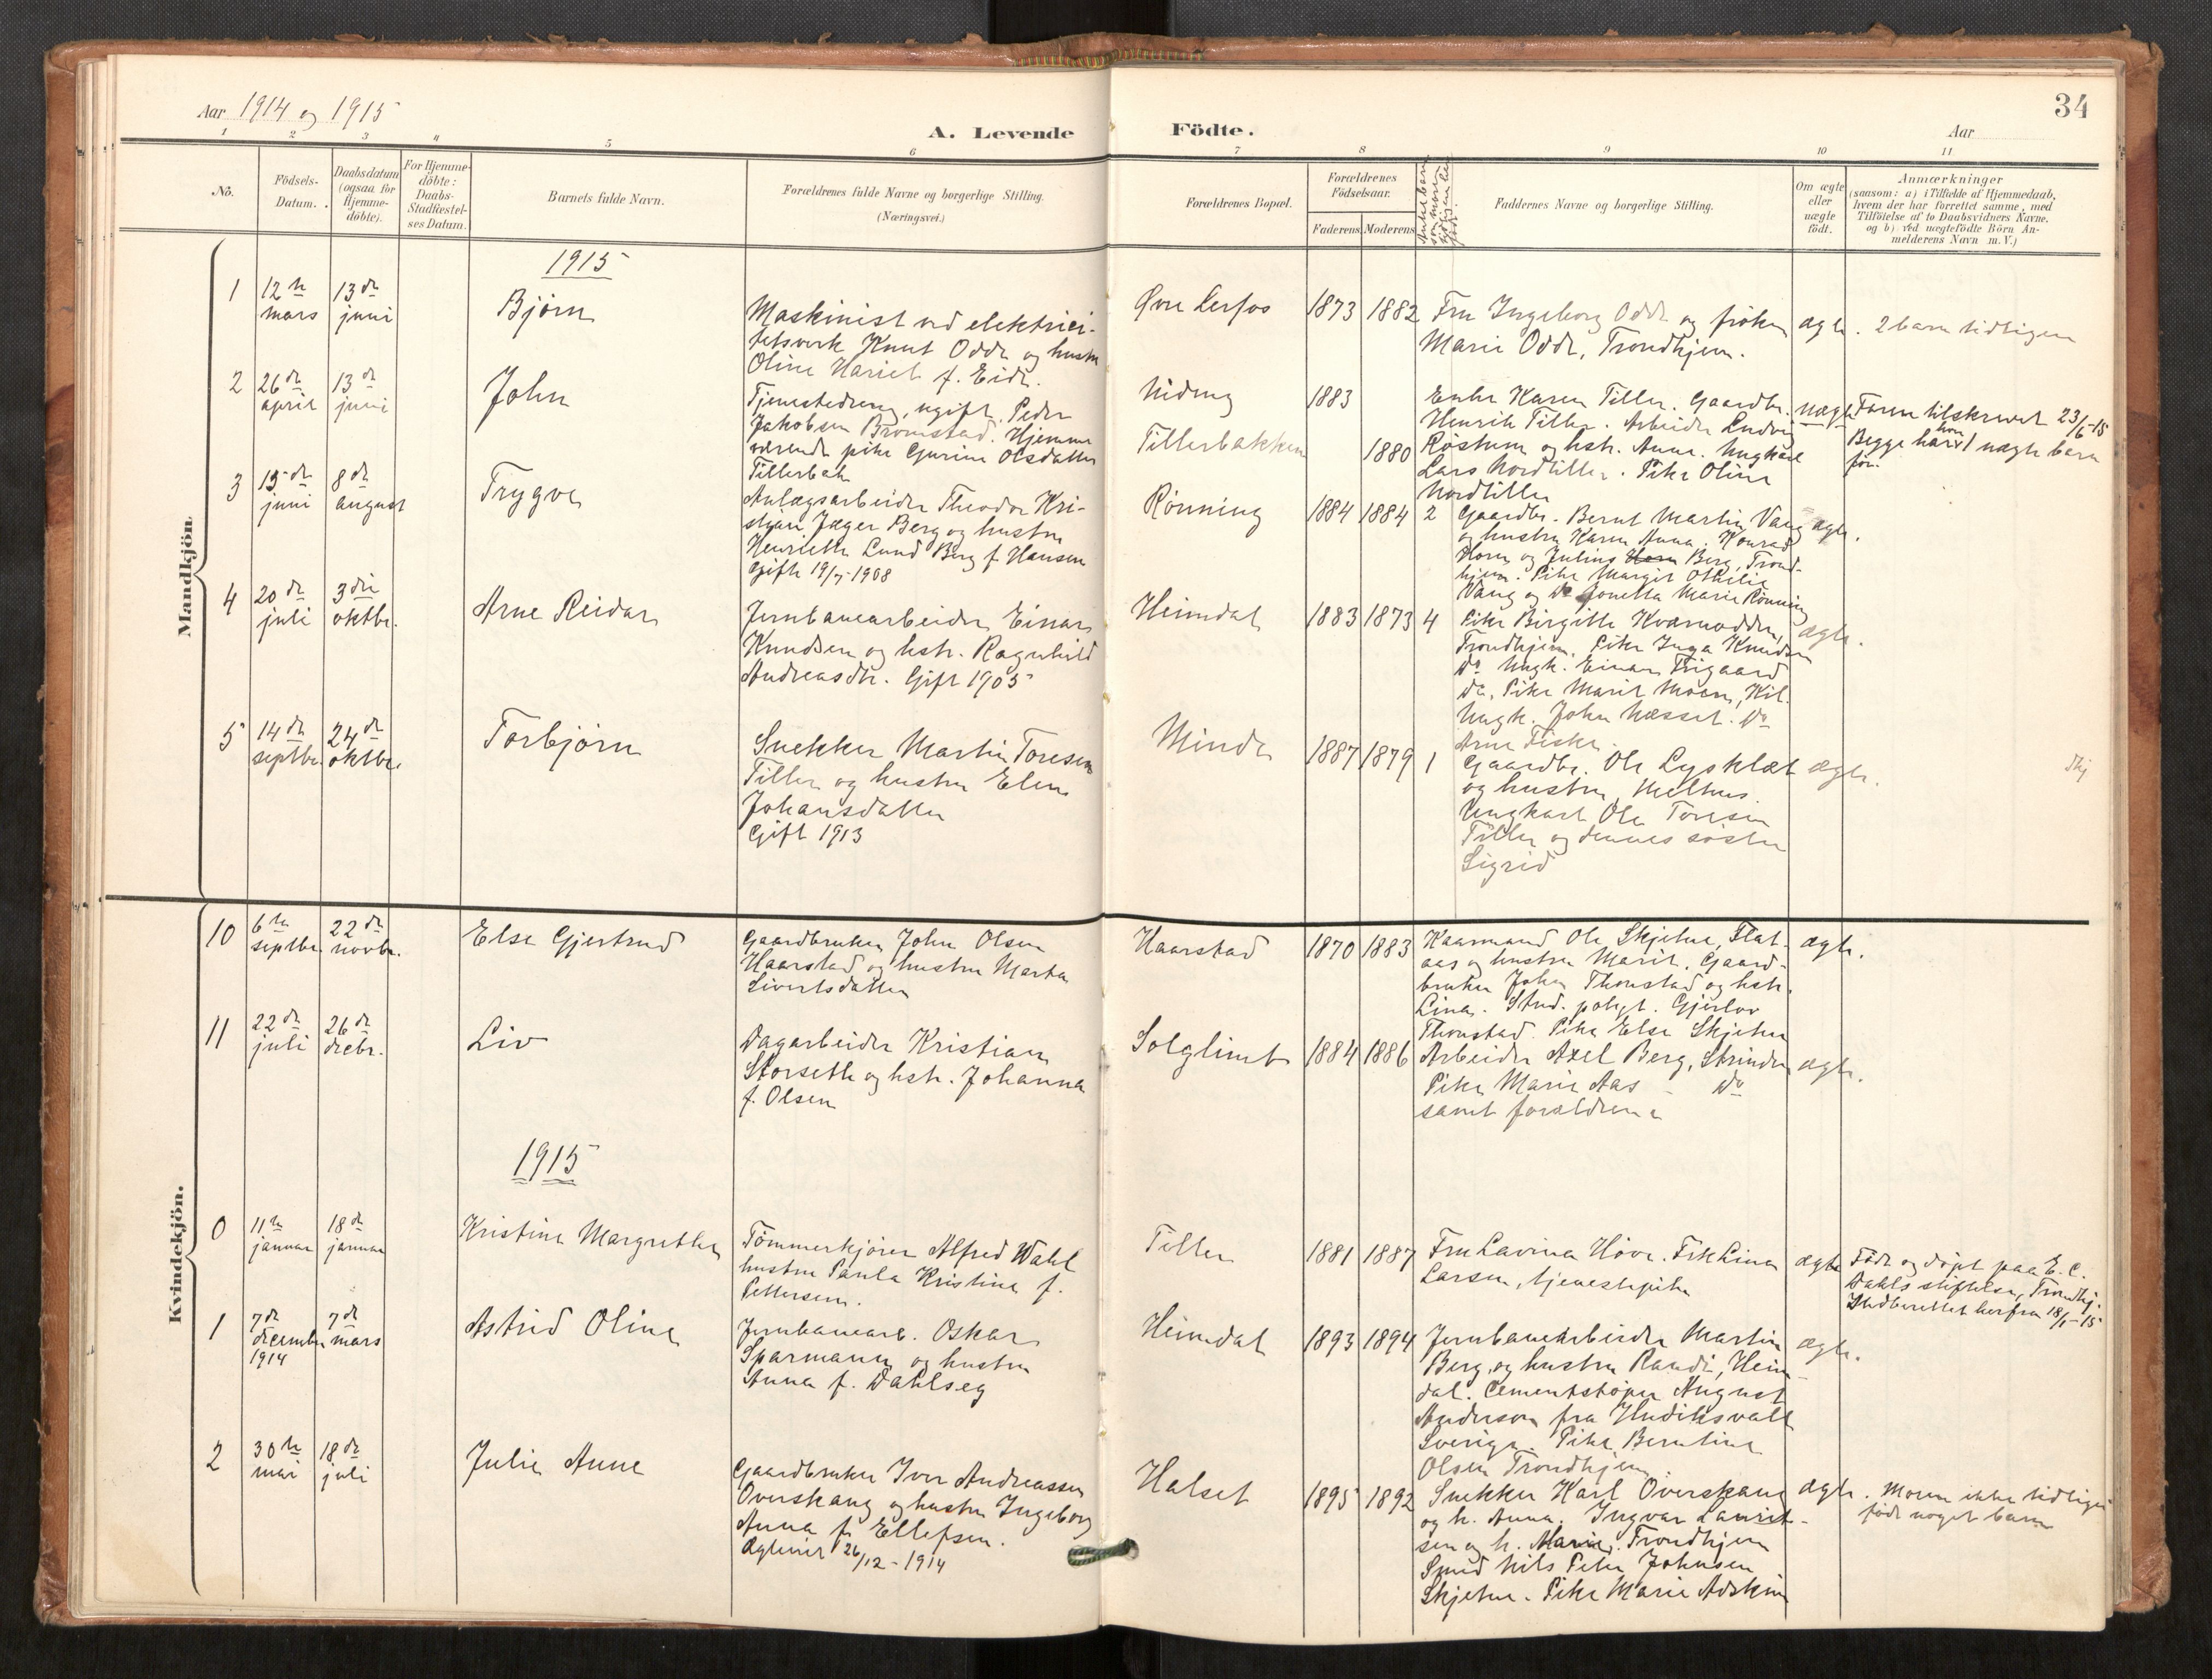 34
Aar 1914 og 1915
A. Levende Födte.
Aar
1 2 3 4 5 6 7 8 9 10 11
No.
Födsels-
Datum.
Daabsdatum
(ogsaa for
Hjemme-
döbte).
For Hjemme-
döbte:
Daabs-
Stadfæstel-
ses Datum.
Barnets fulde Navn.
Forældrenes fulde Navne og borgerlige Stilling.
(Næringsvei.)
Forældrenes Bopæl.
Forældrenes
Födselsaar.
Faderens Moderens
Faddernes Navne og borgerlige Stilling.
Om ægte
eller
uægte
födt.
Anmærkninger
(saasom: a) i Tilfælde af Hjemmedaab,
hvem der har forrettet samme, med
Tilföielse af to Daabsvidners Navne,
og b) ved uægtefödte Börn An-
melderens Navn m. V.)
Mandkjön.
1915
1
12te
mars
13de
juni
Bjørn
Maskinist ved elektrici-
tetsverk Knut Odde og hustru
Oline Hariet f. Eide.
Øvre Lerfos
1873 1882
Fru Ingeborg Odde og frøken
Marie Odde, Trondhjem.
ægte. 2 barn tidligere
2
26de
april
13de
juni
John
Tjenestedreng, ugift, Peder
Jakobsen Bromstad. Hjemme
værende pike Gurine Olsdatter
Tillerbak
Nideng
Tillerbakken
1883
1880
Enke Karen Tiller. Gaardbr.
Henrik Tiller. Arbeider Ludvig
Røstum og hstr. Anna. Ungkarl
Lars Nordtiller. Pike Oline
Nordtiller
uægte
Faren tilskrevet 23/6-15
Begge har hver 1 uægte barn
før.
3
15de
juni
8de
august
Trygve
Anlægsarbeider Theodor Kri-
stjan Jæger Berg og hustru
Henriette Lund Berg f. Hansen
Gifte 19/7-1908
Rønning
1884 1884 2
Gaardbr. Bernt Martin Vang
og hustru Karen Anna. Konrad
Horn og Julius Horn Berg, Trond-
hjem. Pike Margit Othilie
Vang og Do Jonetta Marie Rønning
ægte.
4
20de
juli
3die
oktbr.
Arne Reidar
Jernbanearbeider Einar
Knudsen og hstr. Ragnhild
Andreasdtr. Gift 1905
Heimdal
1883 1873 4
Pike Birgitte Kvarnodden,
Trondhjem. Pike Inga Knudsen
Do Ungk. Einar Trigaard
Do, Pike Marit Moen, Kil.
Ungk. John Næsset. Do
Arne Fiske.
ægte.
5
14de
septbr.
24de
oktbr.
Torbjørn
Snekker Martin Toresen
Tiller og hustru Elen
Johansdatter
Gift 1913
Minde
1887 1879 1
Gaardbr. Ole Lysklæt
og hustru, Melhus.
Ungkarl Ole Toresen
Tiller og dennes søster
Sigrid
ægte.
Kvindekjön.
10
6te
septbr.
22de
novbr.
Else Gjertrud
Gaardbruker John Olsen
Haarstad og hustru Marta
Sivertsdatter
Haarstad
1870 1883
Kaarmand Ole Skjetne, Flat-
aas og hustru Marit. Gaard-
bruker John Thonstad og hstr.
Lina. Stud. polyt. Gjerlov
Thonstad. Pike Else Skjetne
ægte.
11
22de
juli
26de
decbr.
Liv
Dagarbeider Kristian
Storseth og hstr. Johanna
f. Olsen
Solglimt
1884 1886
Arbeider Axel Berg, Strinden
Pike Marie Aas - Do
samt forældrene
ægte.
1915
0
11te
januar
18de
januar
Kristine Margrethe
Tömmerkjörer Alfred Wahl
hustru Paula Kristine f.
Pettersen.
Tiller
1881 1887
Fru Lavina Høve. Frk Lina
Larsen, tjenestepike
ægte
Født og døpt paa E. C.
Dahls stiftelse, Trondhj.
Indberettet herfra 18/1-15
1
7de
december
1914
7de
mars
Astrid Oline
Jernbanearb. Oskar
Sparmann og hustru
Anna f. Dahlseg
Heimdal
1893 1894
Jernbanearbeider Martin
Berg og hustru Randi, Heim-
dal. Cementstøper August
Anderson fra Hudiksvall
Sverige. Pike Berntine
Olsen Trondhjem.
ægte.
2
30te
mai
18de
juli
Julie Anne
Gaardbruker Iver Andreassen
Overskang og hustru Ingeborg
Anna f. Ellefsen.
Ægteviet 26/12-1914
Halset
1895 1892
Snekker Karl Overskang
og h. Anna. Ingvar Laurit-
sen og h. Marie, Trondhjem
Smed Nils Peter Johnsen
Skjetne. Pike Marie
ægte. Moren ikke tidligere
født noget barn